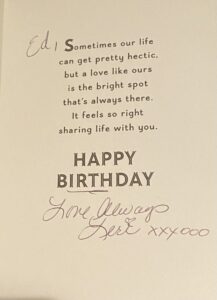 Ed, Sometimes our life
can get pretty hectic,
but a love like ours
is the bright spot
that's always there.
It feels so right
sharing life with you.
HAPPY
BIRTHDAY
Love Always
xxxooo